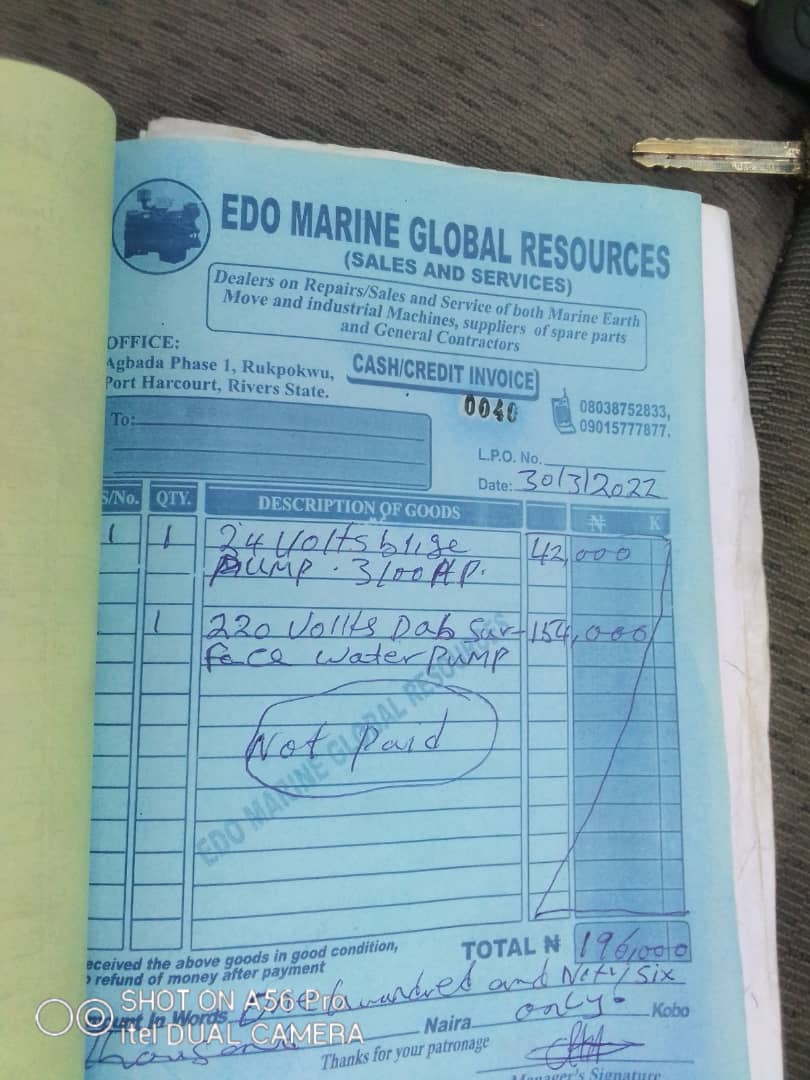 EDO MARINE GLOBAL RESOURCES
(SALES AND SERVICES)
Dealers on Repairs/Sales and Service of both Marine Earth
Move and industrial Machines, suppliers of spare parts
and General Contractors
OFFICE:
Agbada Phase 1, Rukpokwu,
Port Harcourt, Rivers State.
CASH/CREDIT INVOICE
0040
08038752833,
09015777877.
To:
L.P.O. No.
Date: 30/3/2022
S/No. QTY. DESCRIPTION OF GOODS ₦ K
1 1 24 Volts blige 42,000
PUMP. 3100 HP.
1 220 Vollts Dab Sur- 154,000
face water PUMP
Not Paid
EDO MARINE GLOBAL RESOURCES
eceived the above goods in good condition,
refund of money after payment
TOTAL ₦ 196,000
ount in Words One hundred and Ninty Six
thousand Naira only. Kobo
Thanks for your patronage
Manager's Signature
SHOT ON A56 Pro
itel DUAL CAMERA